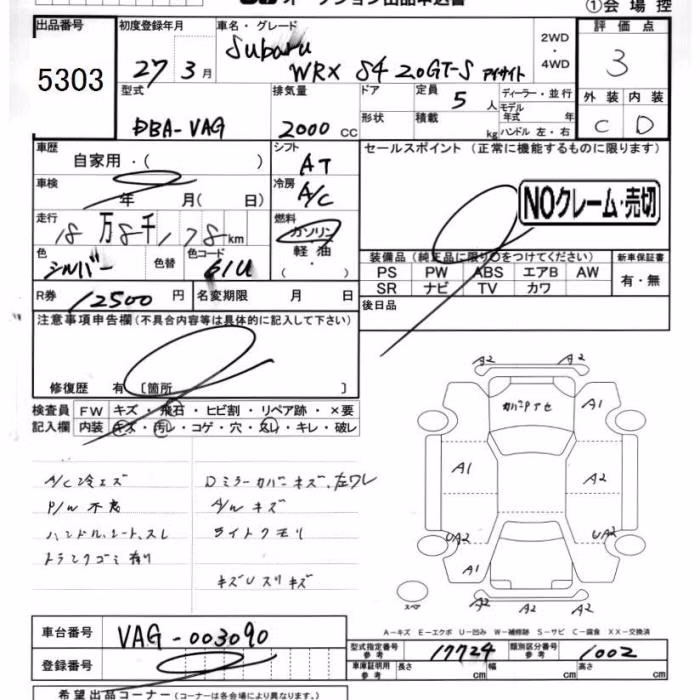 オークション出品申込書
①会場控
出品番号 初度登録年月 車名・グレード 評価点
5303 27年3月 Subaru WRX S4 2.0GT-S アイサイト 2WD・4WD 3
型式 排気量 ドア 定員 5人 ディーラー・並行 外装 内装
DBA-VAG 2000cc 形状 積載 kg モデル年式 年 ハンドル 左・右 C D
車歴 自家用・( ) シフト AT セールスポイント(正常に機能するものに限ります)
車検 年 月( 日) 冷房 A/C NOクレーム・売切
走行 18万8千178km 燃料 ガソリン・軽油
色 シルバー 色替 色コード G1U 装備品(純正品に限り○をつけてください) 新車保証書
PS PW ABS エアB AW 有・無
SR ナビ TV カワ
R券 12500円 名変期限 月 日 後日品
注意事項申告欄(不具合内容等は具体的に記入して下さい)
修復歴 有〔箇所 〕
検査員 FW キズ・飛石・ヒビ割・リペア跡・×要
記入欄 内装 キズ・汚レ・コゲ・穴・スレ・キレ・破レ
A/C冷エズ Dミラーカバーキズ、左ワレ
P/W不良 A/Wキズ
ハンドル、シート、スレ ライトクモリ
トランクゴミ有り
キズUスリキズ
A2 A2
カバーPアセ A1
A1 A2
UA2 UA2
A1
スペア A2 W A2 A2
A-キズ E-エクボ U-凹み W-補修跡 S-サビ C-腐食 XX-交換済
車台番号 VAG-003090 型式指定番号 参考 17724 類別区分番号 参考 1002
登録番号 車庫証明用 参考 長さ cm 幅 cm 高さ cm
希望出品コーナー(コーナーは各会場により異なります。)